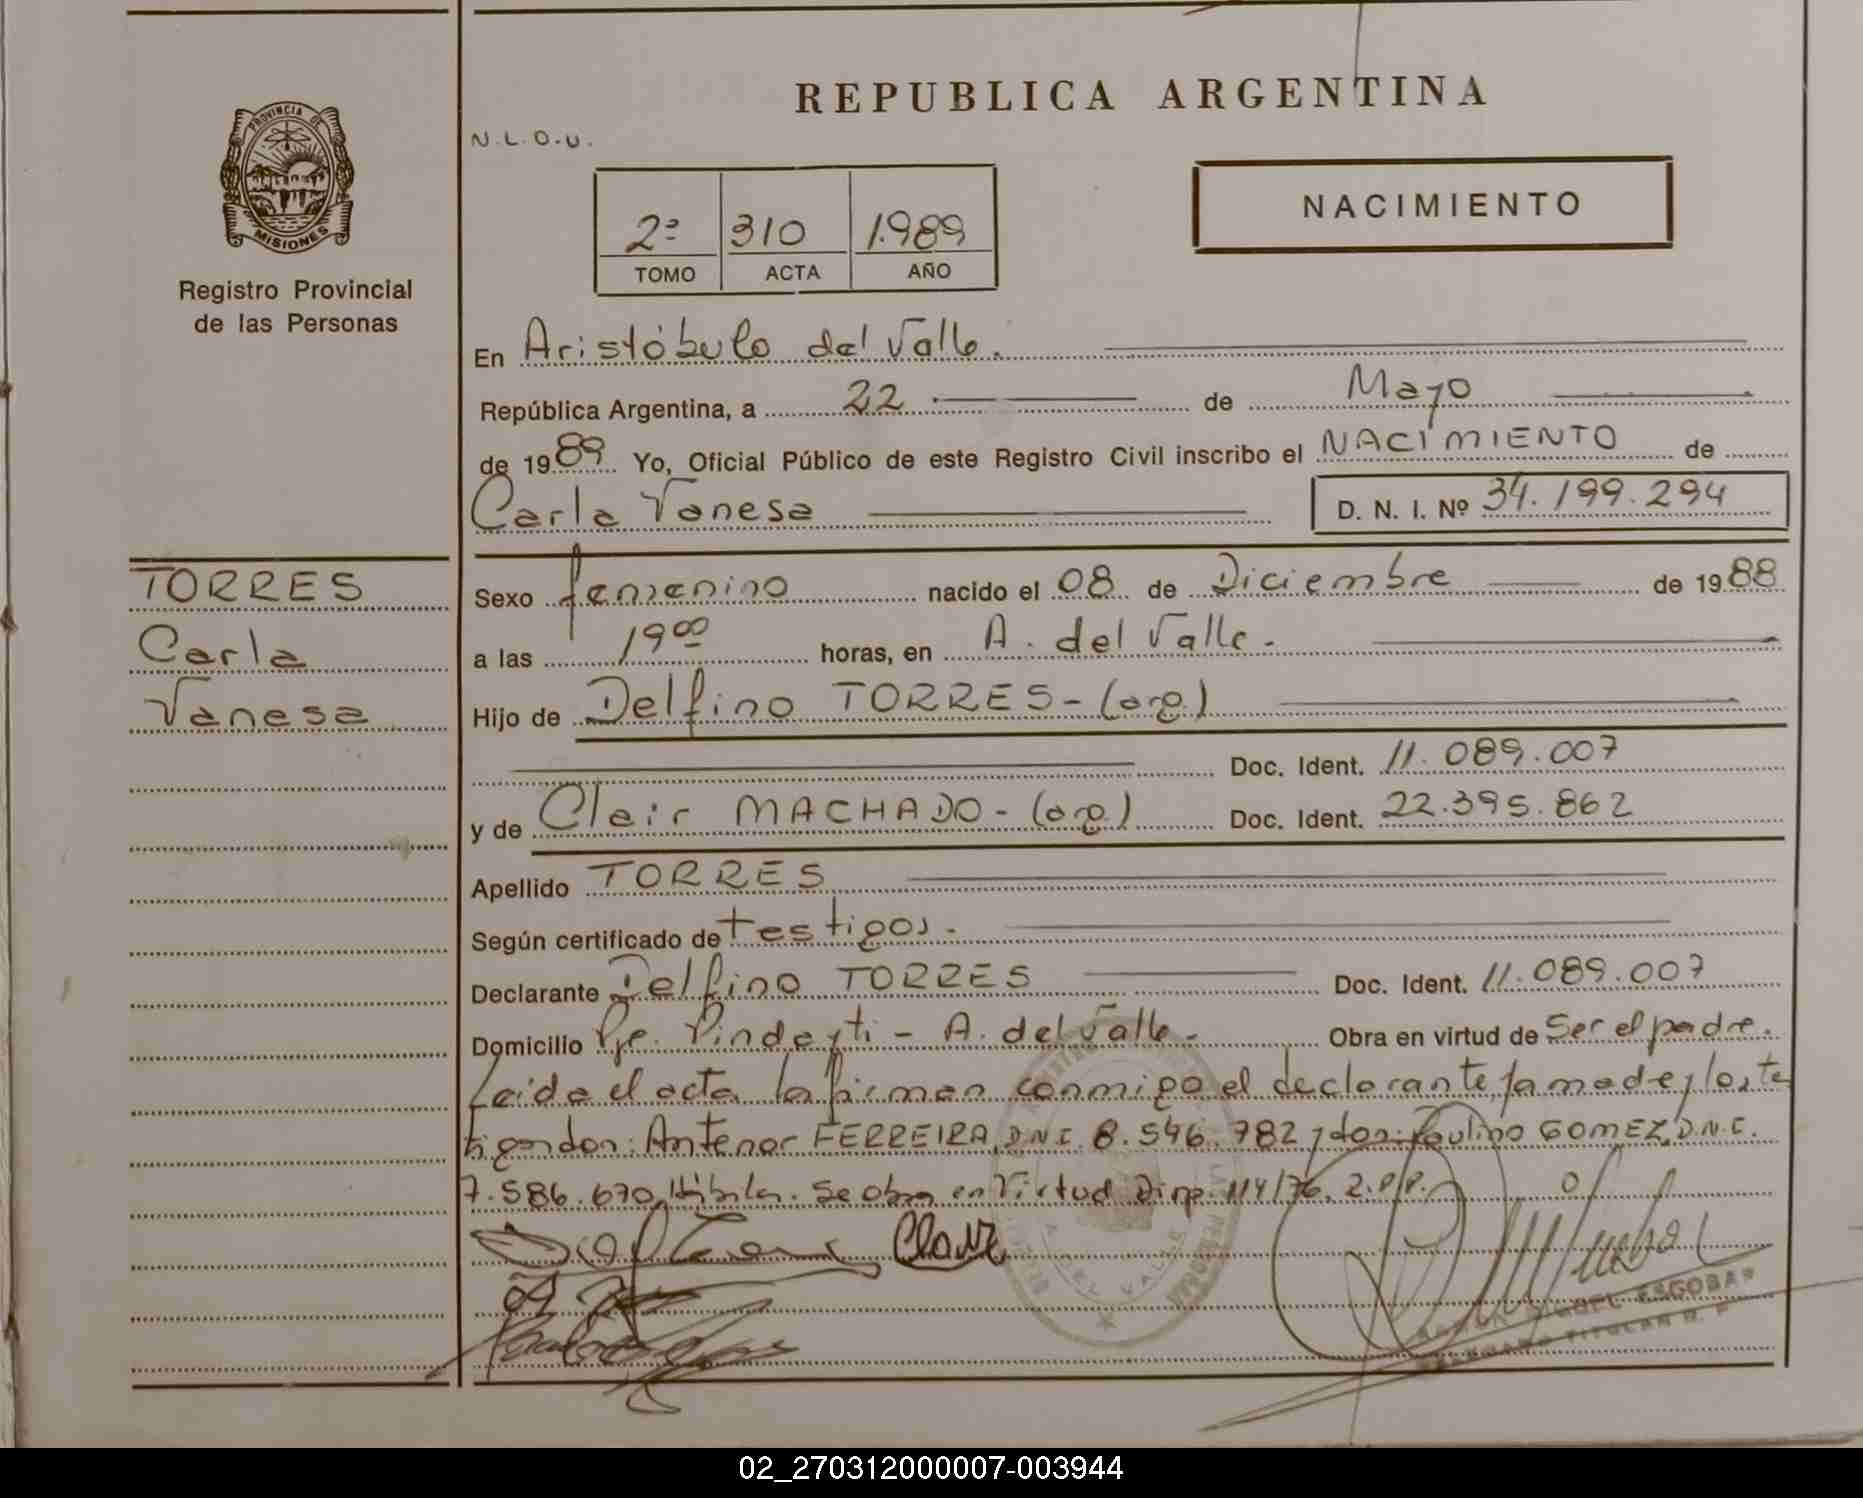 REPUBLICA ARGENTINA
N.L.O.U.
PROVINCIA DE
MISIONES
Registro Provincial
de las Personas
2º 310 1.989
TOMO ACTA AÑO
NACIMIENTO
En Aristóbulo del Valle.
República Argentina, a 22 de Mayo
de 1989 Yo, Oficial Público de este Registro Civil inscribo el NACIMIENTO de
Carla Vanesa D. N. I. Nº 34.199.294
TORRES
Carla
Vanesa
Sexo femenino nacido el 08 de Diciembre de 1988
a las 19⁰⁰ horas, en A. del Valle.
Hijo de Delfino TORRES-(arg)
Doc. Ident. 11.089.007
y de Clair MACHADO-(arg) Doc. Ident. 22.395.862
Apellido TORRES
Según certificado de testigos.
Declarante Delfino TORRES Doc. Ident. 11.089.007
Domicilio Pje. Pindayti - A. del Valle. Obra en virtud de Ser el padre.
Leida el acta la firman conmigo el declarante, la madre y los tes
tigos don: Antenor FERREIRA, D.N.I. 8.546.782 y don: Paulino GOMEZ, D.N.I.
7.586.670, hábiles. Se obra en Virtud Disp. 114/76.
A. DEL VALLE
MIGUEL ESCOBAR
TITULAR R. P.
02_270312000007-003944